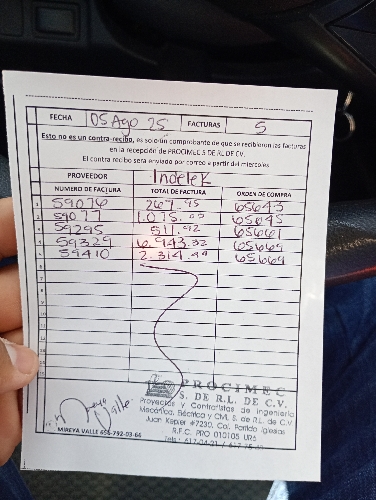 FECHA 05 Ago 25 FACTURAS 5
Esto no es un contra-recibo, es solo un comprobante de que se recibieron las facturas
en la recepción de PROCIMEC S DE RL DE CV.
El contra recibo sera enviado por correo a partir del miercoles
PROVEEDOR Indelek
NUMERO DE FACTURA TOTAL DE FACTURA ORDEN DE COMPRA
1 59076 267.95 65643
2 59077 1,075.00 65645
3 59295 511.92 65661
4 59329 6,943.32 65664
5 59410 2,314.44 65664
6
7
8
9
10
11
12
PROCIMEC
S. DE R.L. DE C.V.
Proyectos y Contratistas de Ingeniería
Mecánica, Eléctrica y Civil, S. de R.L. de C.V.
Juan Kepler #7230, Col. Partido Iglesias
R.F.C. PRO 010105 UR5
Valle
MIREYA VALLE 656-792-03-66